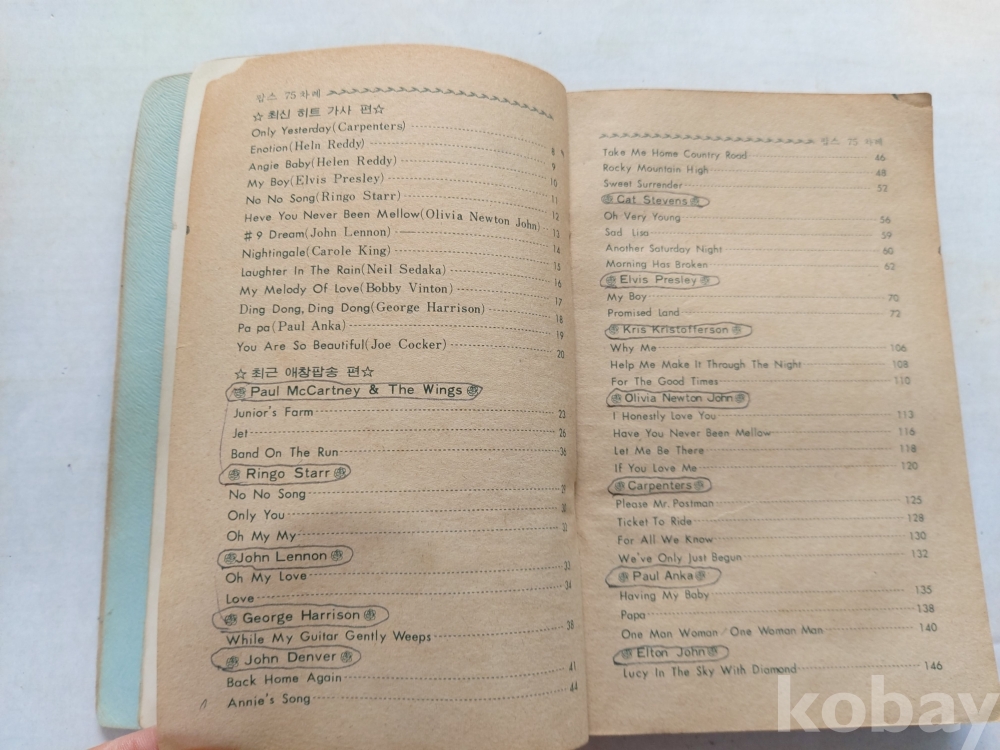 팝스 75 차례
☆최신 히트 가사 편☆
Only Yesterday(Carpenters)
Enotion(Heln Reddy) 8
Angie Baby(Helen Reddy) 9
My Boy(Elvis Presley) 10
No No Song(Ringo Starr) 11
Heve You Never Been Mellow(Olivia Newton John) 12
#9 Dream(John Lennon) 13
Nightingale(Carole King) 14
Laughter In The Rain(Neil Sedaka) 15
My Melody Of Love(Bobby Vinton) 16
Ding Dong, Ding Dong(George Harrison) 17
Pa pa(Paul Anka) 18
You Are So Beautiful(Joe Cocker) 19
20
☆최근 애창팝송 편☆
Paul McCartney & The Wings
Junior's Farm 23
Jet 26
Band On The Run 36
Ringo Starr
No No Song
Only You
Oh My My
John Lennon
Oh My Love 33
Love 34
George Harrison
While My Guitar Gently Weeps 38
John Denver
Back Home Again 41
Annie's Song 44
팝스 75 차례
Take Me Home Country Road 46
Rocky Mountain High 48
Sweet Surrender 52
Cat Stevens
Oh Very Young 56
Sad Lisa 59
Another Saturday Night 60
Morning Has Broken 62
Elvis Presley
My Boy 70
Promised Land 72
Kris Kristofferson
Why Me 106
Help Me Make It Through The Night 108
For The Good Times 110
Olivia Newton John
I Honestly Love You 113
Have You Never Been Mellow 116
Let Me Be There 118
If You Love Me 120
Carpenters
Please Mr. Postman 125
Ticket To Ride 128
For All We Know 130
We've Only Just Begun 132
Paul Anka
Having My Baby 135
Papa 138
One Man Woman/One Woman Man 140
Elton John
Lucy In The Sky With Diamond 146
kobay